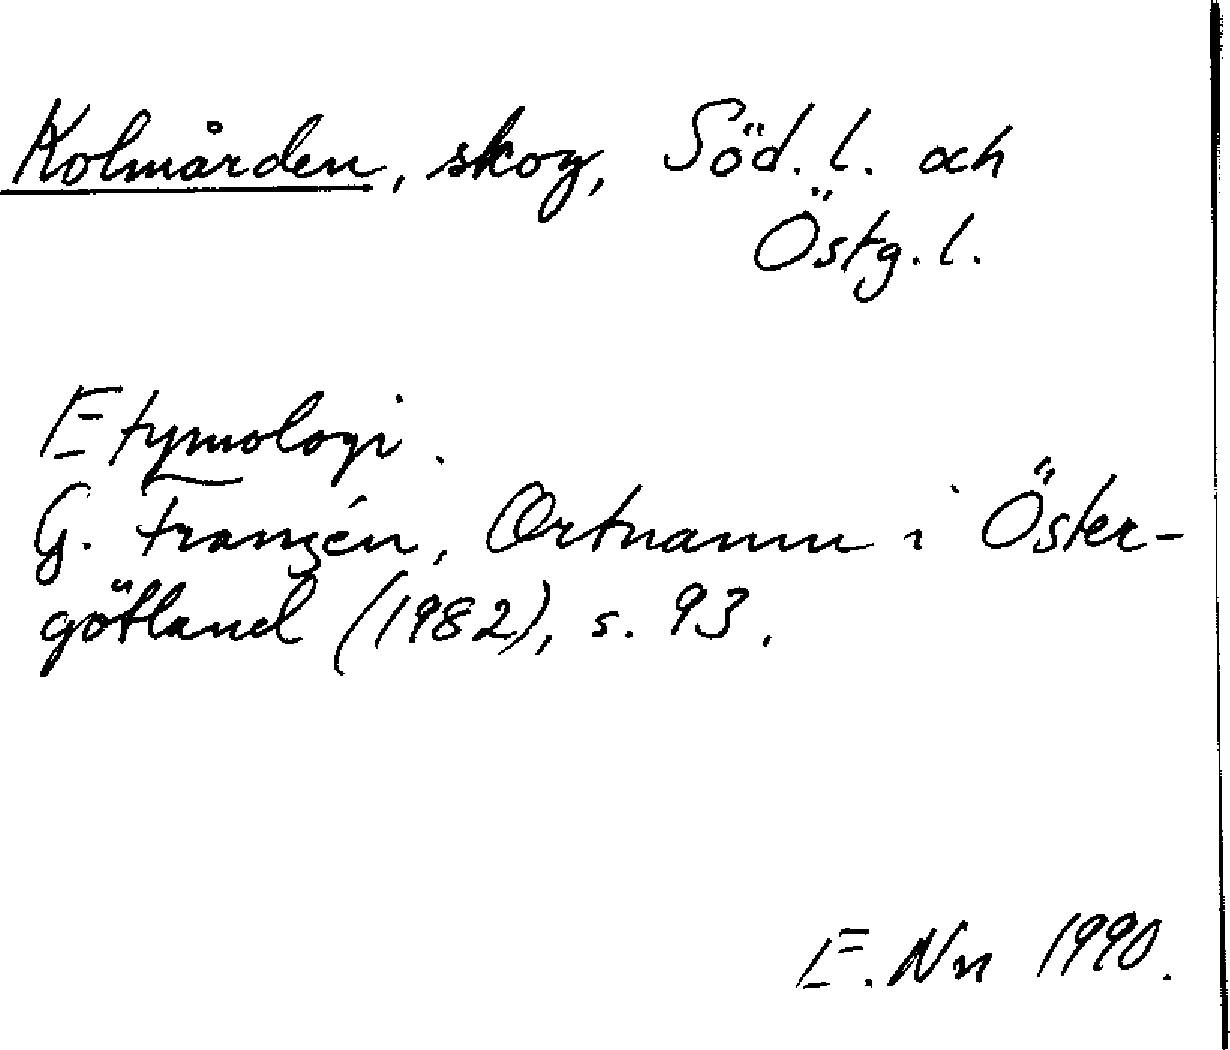 Kolmården, skog, Söd. l. och
Östg. l.
Etymologi.
G. Franzén, Ortnamn i Öster-
götland (1982), s. 93.
E. Nn 1990.